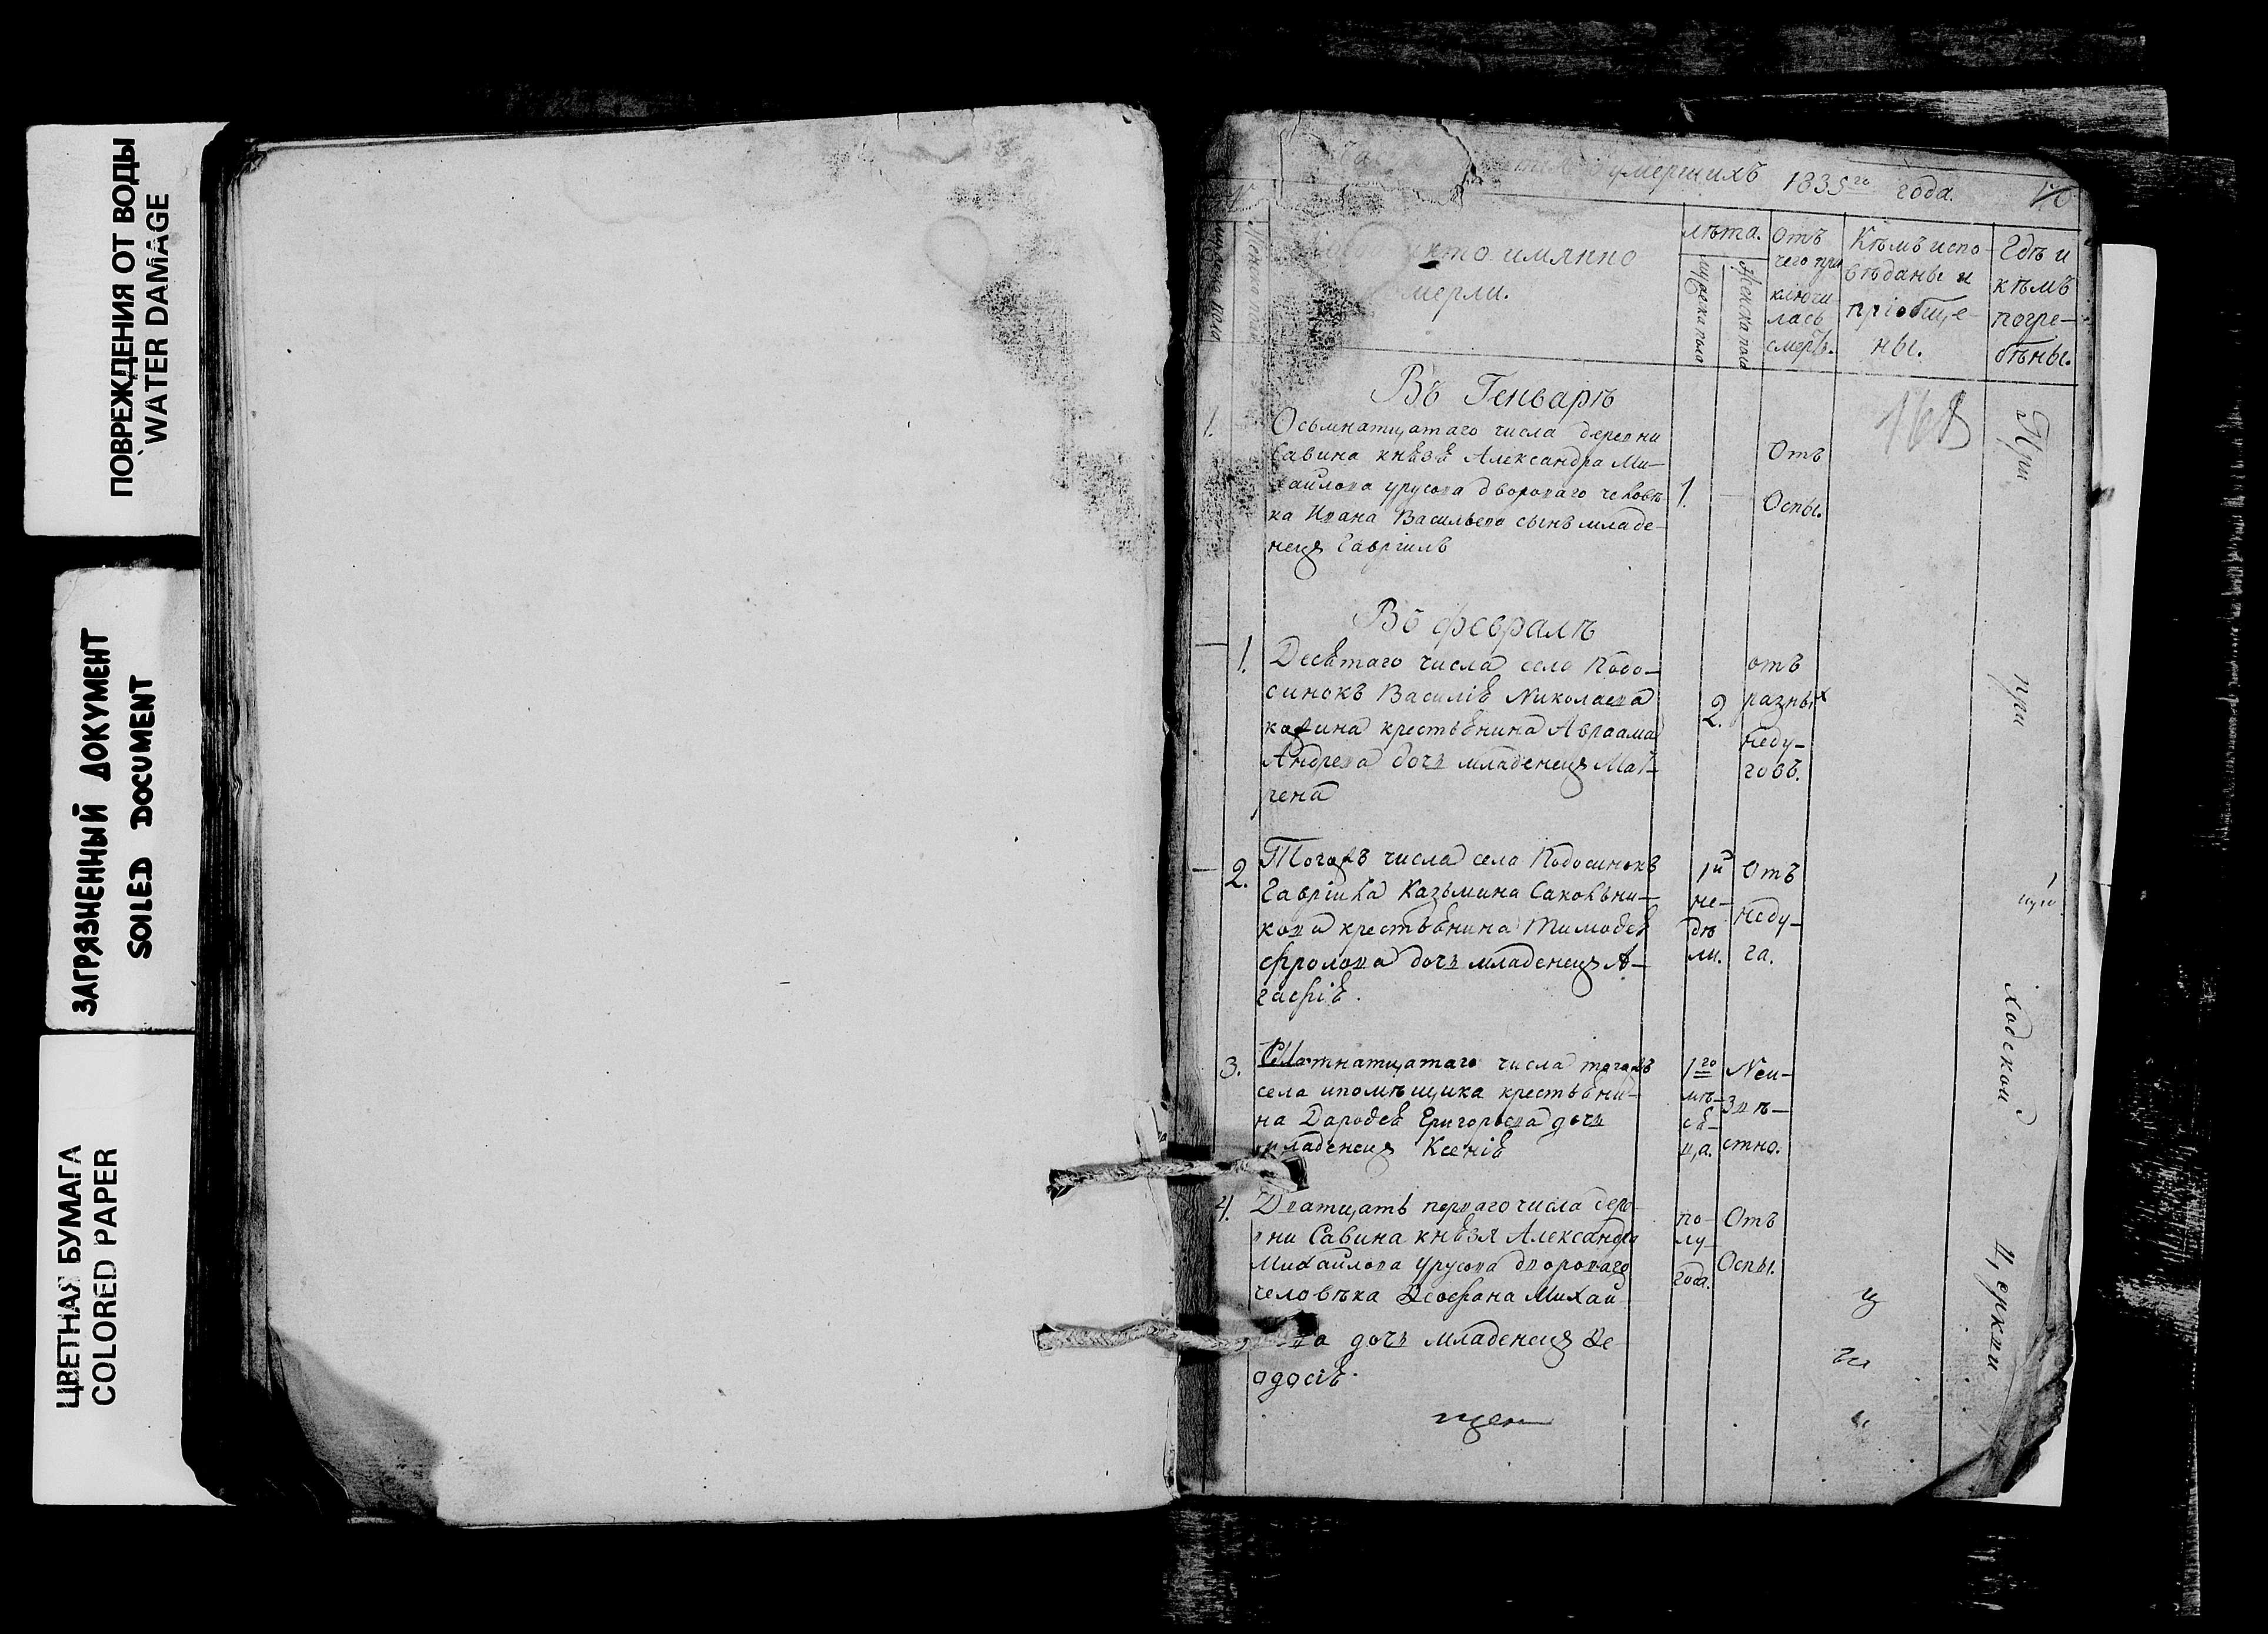 ПОВРЕЖДЕНИЯ ОТ ВОДЫ
WATER DAMAGE
ЗАГРЯЗНЕННЫЙ ДОКУМЕНТ
SOILED DOCUMENT
ЦВЕТНАЯ БУМАГА
COLORED PAPER
умершихъ 1835го года.
кто имянно
мерли.
лѣта.
Мужеска пола
Женска пола
отъ
чего при
ключи
лась
смерть.
Кѣмъ испо-
вѣданы и
пріобще-
ны.
Гдѣ и
кѣмъ
погре-
бѣны.
168
Въ Генварѣ
1.
Осьмнатцатаго числа деревни
Савина князя Александра Ми-
хаилова Урусова двороваго человѣ-
ка Ивана Васильева сынъ младе-
нецъ Гавріилъ
1.
Отъ
Оспы.
Въ февралѣ
1.
Десятаго числа села Подо-
синокъ Василія Николаева
крестьянина Авраама
Андреева дочь младенецъ Мат-
рена
2.
отъ
разных
неду-
говъ.
2.
Тогожъ числа села Подосинокъ
Гавріила Казьмина Сакольни-
кова крестьянина Тимофея
Фролова дочь младенецъ А-
гафія.
1й
не-
дѣ
ли.
Отъ
неду-
га.
3.
числа тогожъ
села ипомѣщика крестьяни-
на Дарофея Григорьева дочь
младенецъ Ксенія
1го
мѣ-
ся-
ца.
Неи-
звѣ-
стно.
4.
Дватцать перваго числа дерев-
ни Савина князя Александра
Михаилова Урусова двороваго
человѣка Ѳеофана Михаи-
ва дочь младенецъ Ѳе-
одосія.
по-
лу-
года.
Отъ
Оспы.
При
при
ходской
Церкви